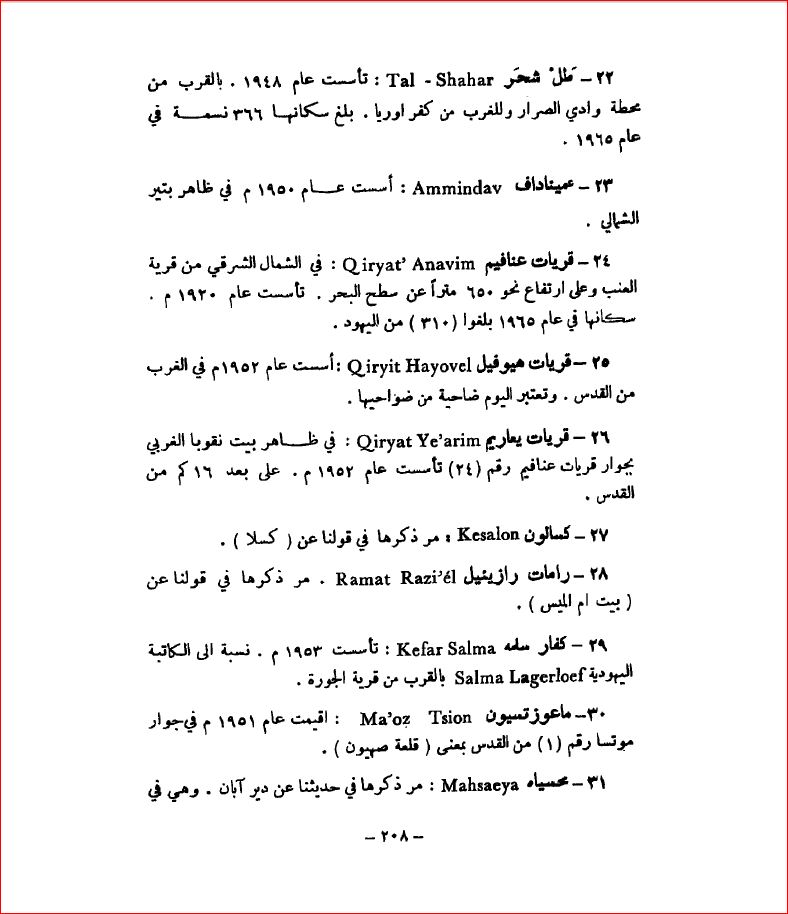 ٢٢ – طَلْ شحَر Tal - Shahar : تأسست عام ١٩٤٨ . بالقرب من
محطة وادي الصرار وللغرب من كفر اوريا . بلغ سكانها ٣٦٦ نسمة في
عام ١٩٦٥ .
٢٣ – عميناداف Ammindav : أسست عام ١٩٥٠ م في ظاهر بتير
الشمالي .
٢٤ – قريات عنافيم Qiryat’ Anavim : في الشمال الشرقي من قرية
العنب وعلى ارتفاع نحو ٦٥٠ متراً عن سطح البحر . تأسست عام ١٩٢٠ م .
سكانها في عام ١٩٦٥ بلغوا (٣١٠) من اليهود .
٢٥ – قريات هيوفيل Qiryit Hayovel : أسست عام ١٩٥٢م في الغرب
من القدس . وتعتبر اليوم ضاحية من ضواحيها .
٢٦ – قريات يعاريم Qiryat Ye’arim : في ظاهر بيت نقوبا الغربي
بجوار قريات عنافيم رقم (٢٤) تأسست عام ١٩٥٢ م . على بعد ١٦ كم من
القدس .
٢٧ – كسالون Kesalon : مر ذكرها في قولنا عن ( كسلا ) .
٢٨ – رامات رازيئيل Ramat Razi’él . مر ذكرها في قولنا عن
( بيت ام الميس ) .
٢٩ – كفار سلمه Kefar Salma : تأسست ١٩٥٣ م . نسبة الى الكاتبة
اليهودية Salma Lagerloef بالقرب من قرية الجورة .
٣٠ – ماعوز تسيون Ma’oz Tsion : اقيمت عام ١٩٥١ م في جوار
موتسا رقم (١) من القدس بمعنى ( قلعة صهيون ) .
٣١ – محسياه Mahsaeya : مر ذكرها في حديثنا عن دير آبان . وهي في
– ٢٠٨ –